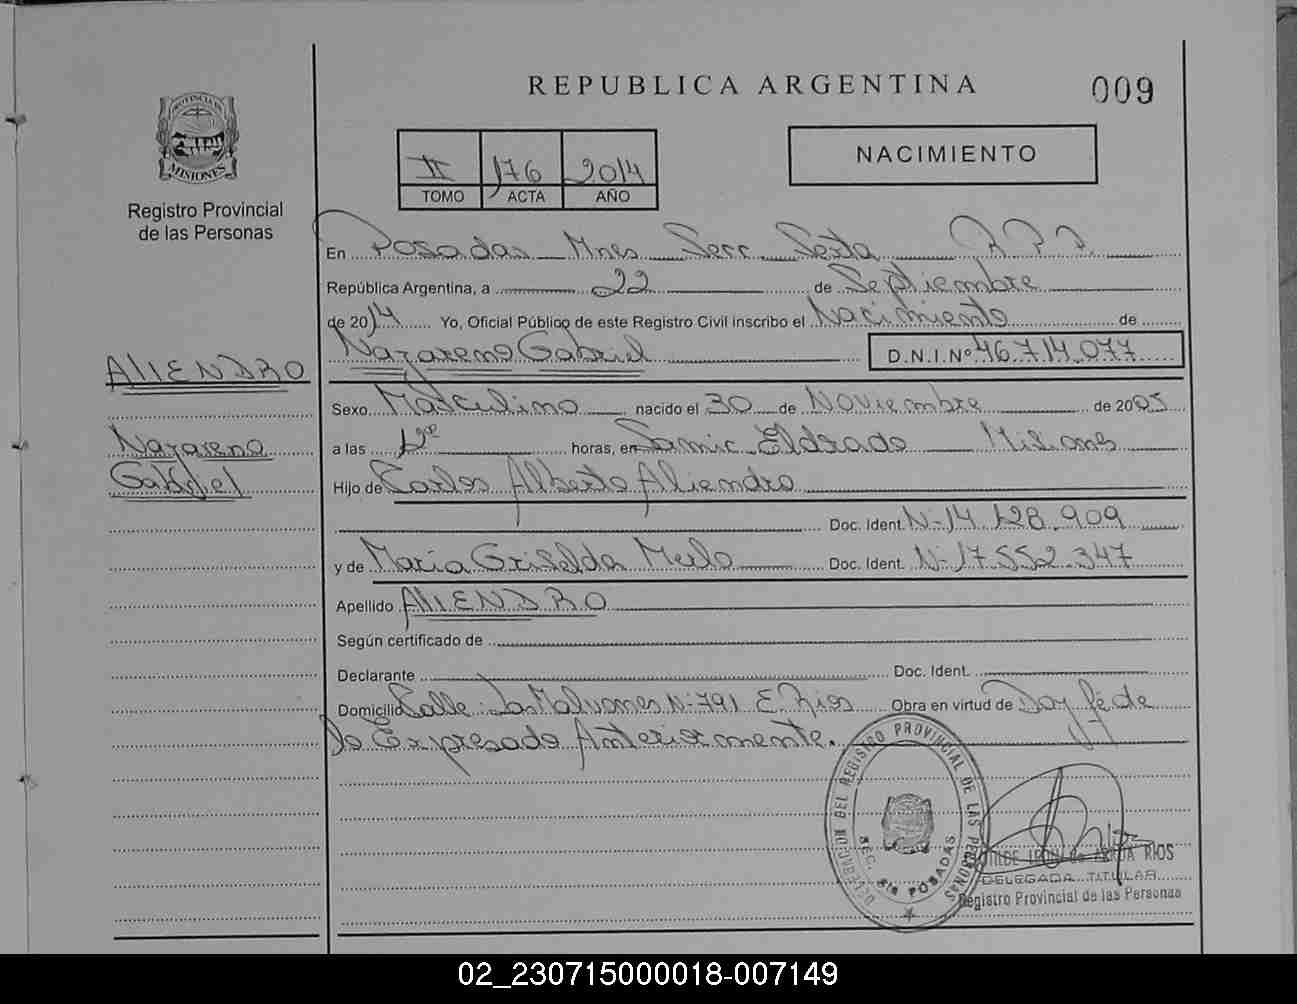 REPUBLICA ARGENTINA
009
PROVINCIA DE
MISIONES
Registro Provincial
de las Personas
II 176 2014
TOMO ACTA AÑO
NACIMIENTO
En Posadas Mnes Secc Sexta R.P.P.
República Argentina, a 22 de Septiembre
de 2014 Yo, Oficial Público de este Registro Civil inscribo el Nacimiento de
Nazareno Gabriel D.N.I.Nº 46.714.077
ALIENDRO
Sexo Masculino nacido el 30 de Noviembre de 2005
Nazareno
Gabriel
a las horas, en Samic Eldorado Misiones
Hijo de Carlos Alberto Aliendro
Doc. Ident. Nº 14.128.909
y de María Griselda Melo Doc. Ident. Nº 17.552.347
Apellido ALIENDRO
Según certificado de
Declarante Doc. Ident.
Domicilio Calle: Los Malvones Nº 791 E. Rios Obra en virtud de Doy fé de
lo Expresado Anteriormente.
DELEGACION DEL REGISTRO PROVINCIAL DE LAS PERSONAS
SEC. 6ta POSADAS
RIOS
DELEGADA TITULAR
Registro Provincial de las Personas
02_230715000018-007149